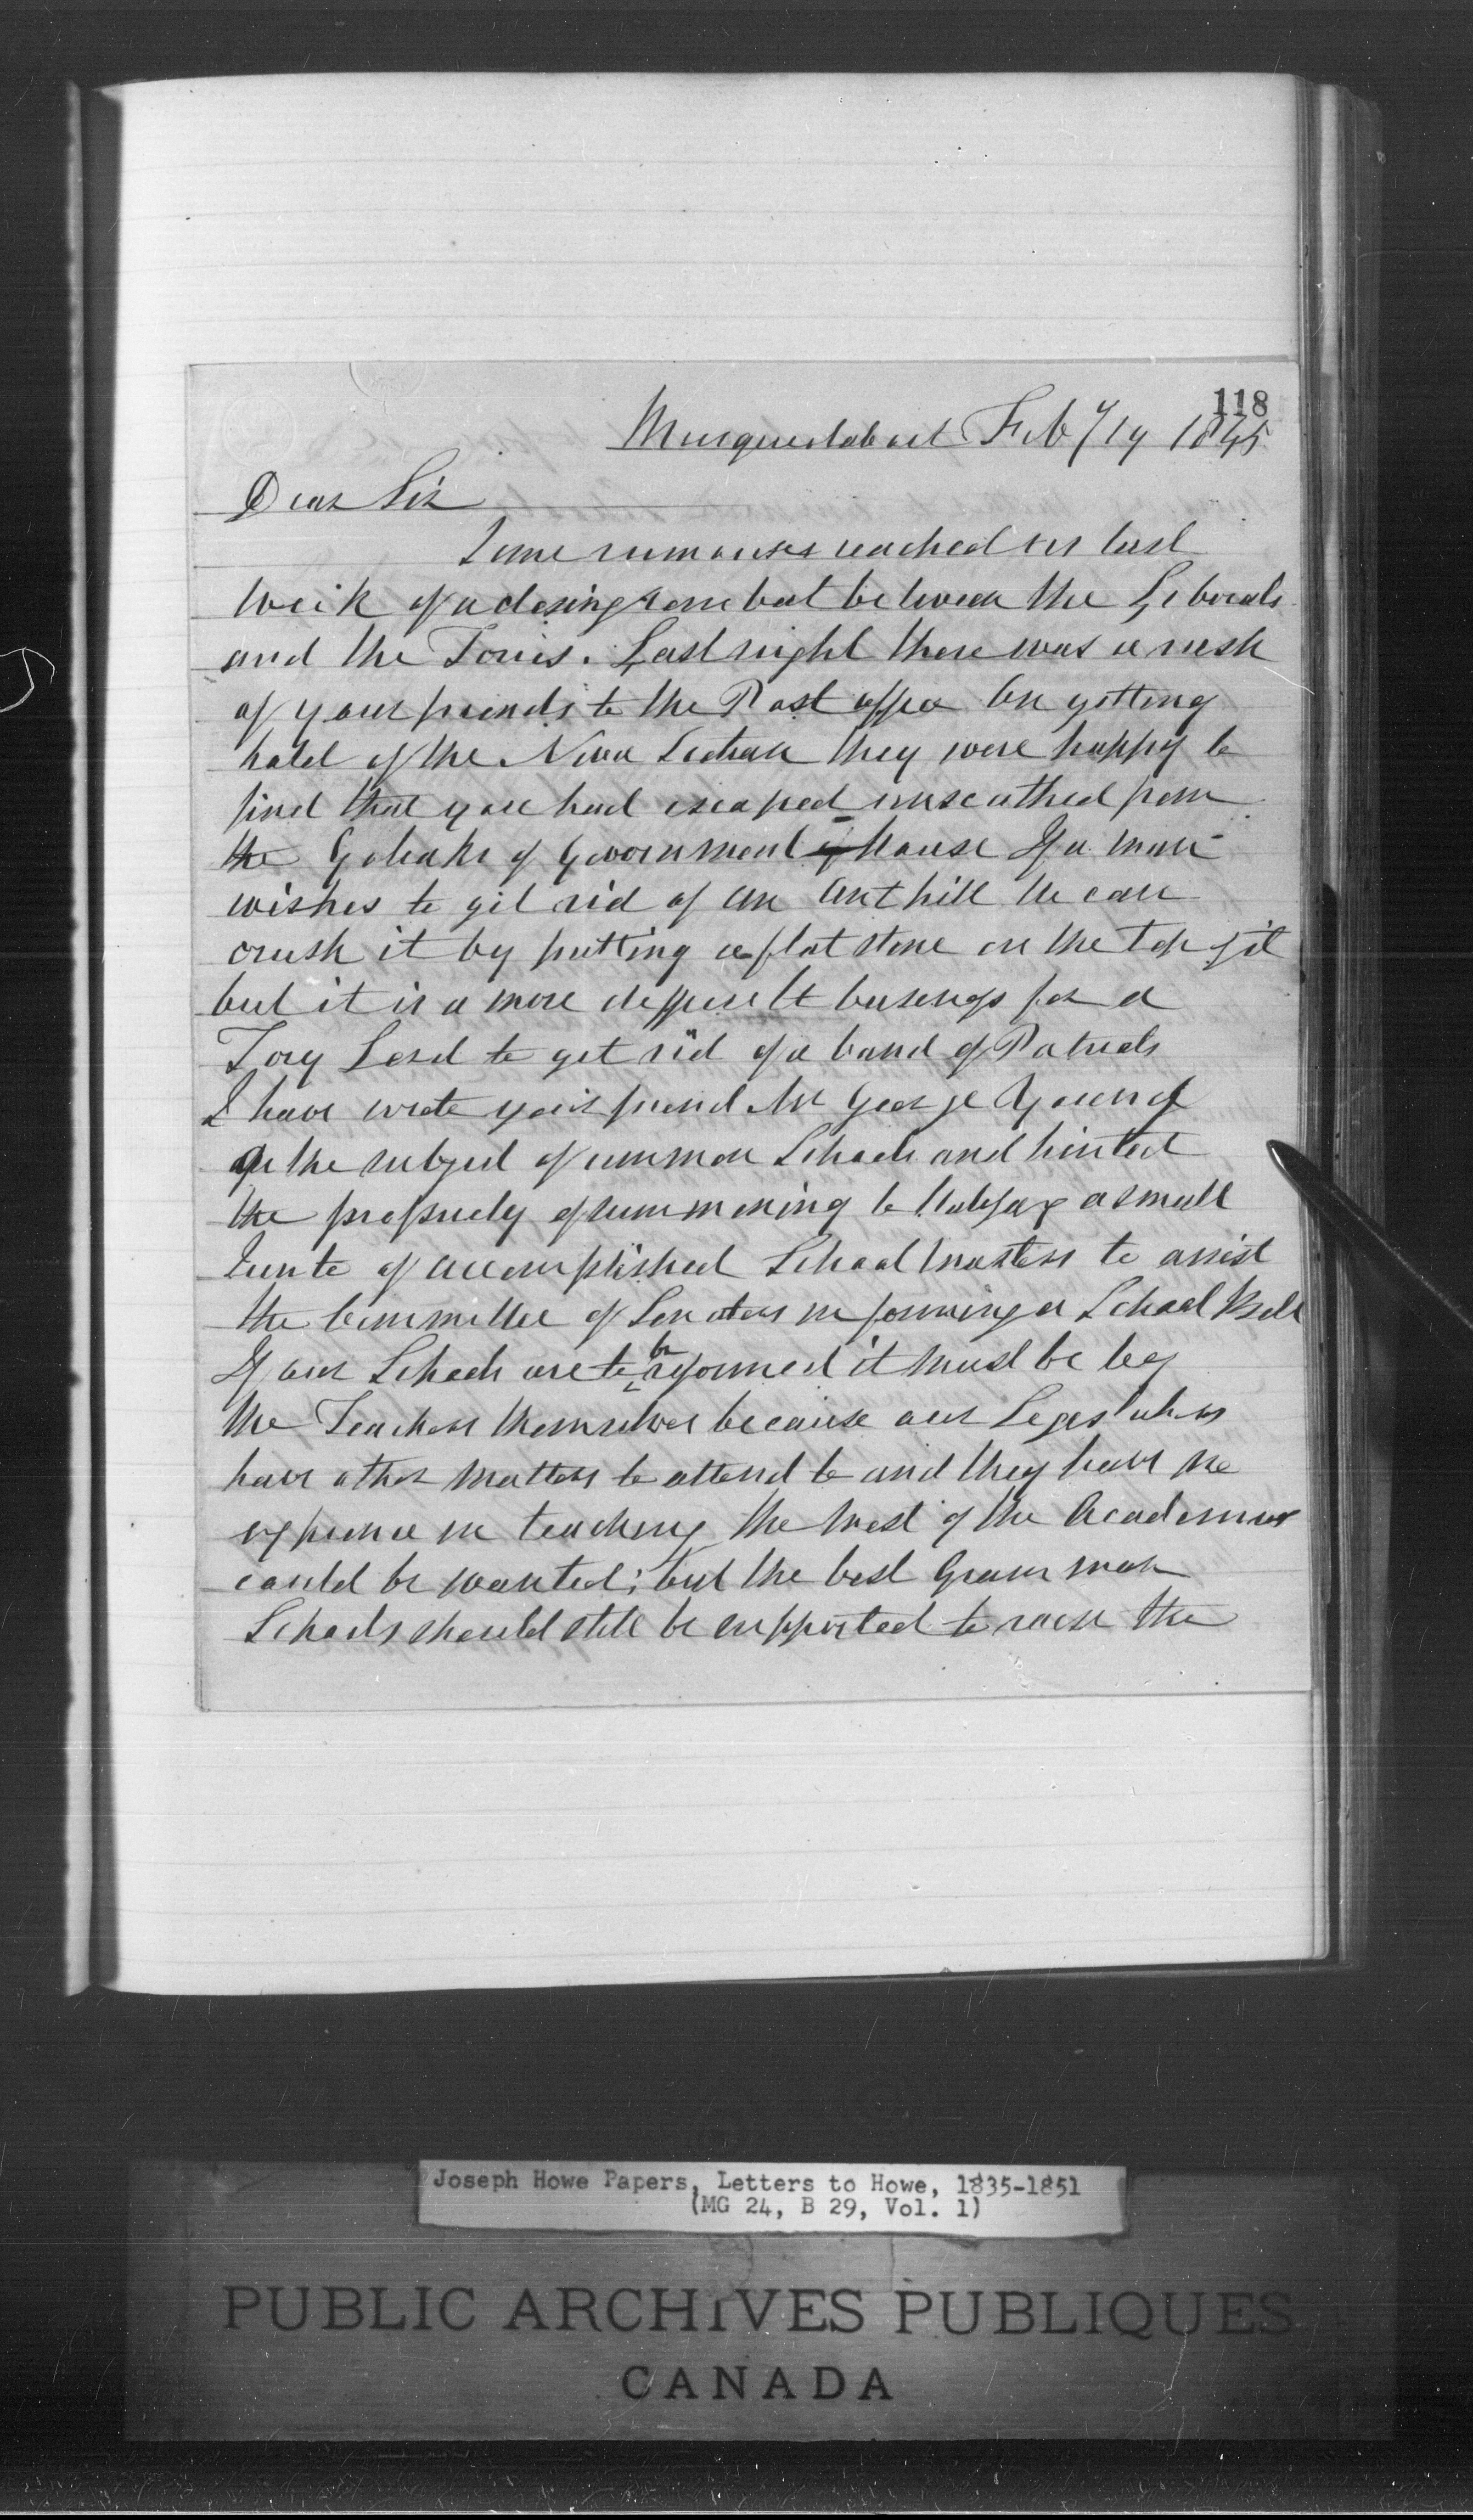 118
Musquodoboit Feby 19 1845
Dear Sir
Some rumours reached us last
week of a desing combat between the Liberals
and the Tories. Last night there was a rush
of your friends to the Post office On getting
hold of the Nova Scotian they were happy to
find that you had escaped unscathed from
the Goliahs of Government house If a man
wishes to git rid of an Ant hill he can
crush it by putting a flat stone on the top of it
but it is a more difficult business for a
Tory Lord to get rid of a band of Patriots
I have wrote your friend Mr George Young
on the subject of common Schools and hinted
the propriety of summoning to Halifax a small
Junto of accomplished School Masters to assist
the Committee of Senators in forming a School Bill
If our Schools are to be reformed it must be by
the Teachers themselves because our Legislators
have other matters to attend to and they have no
experience in teaching the most of the Academies
could be wanted; but the best Grammar
Schools should still be supported to raise the
Joseph Howe Papers, Letters to Howe, 1835-1851
(MG 24, B 29, Vol. 1)
PUBLIC ARCHIVES PUBLIQUES
CANADA